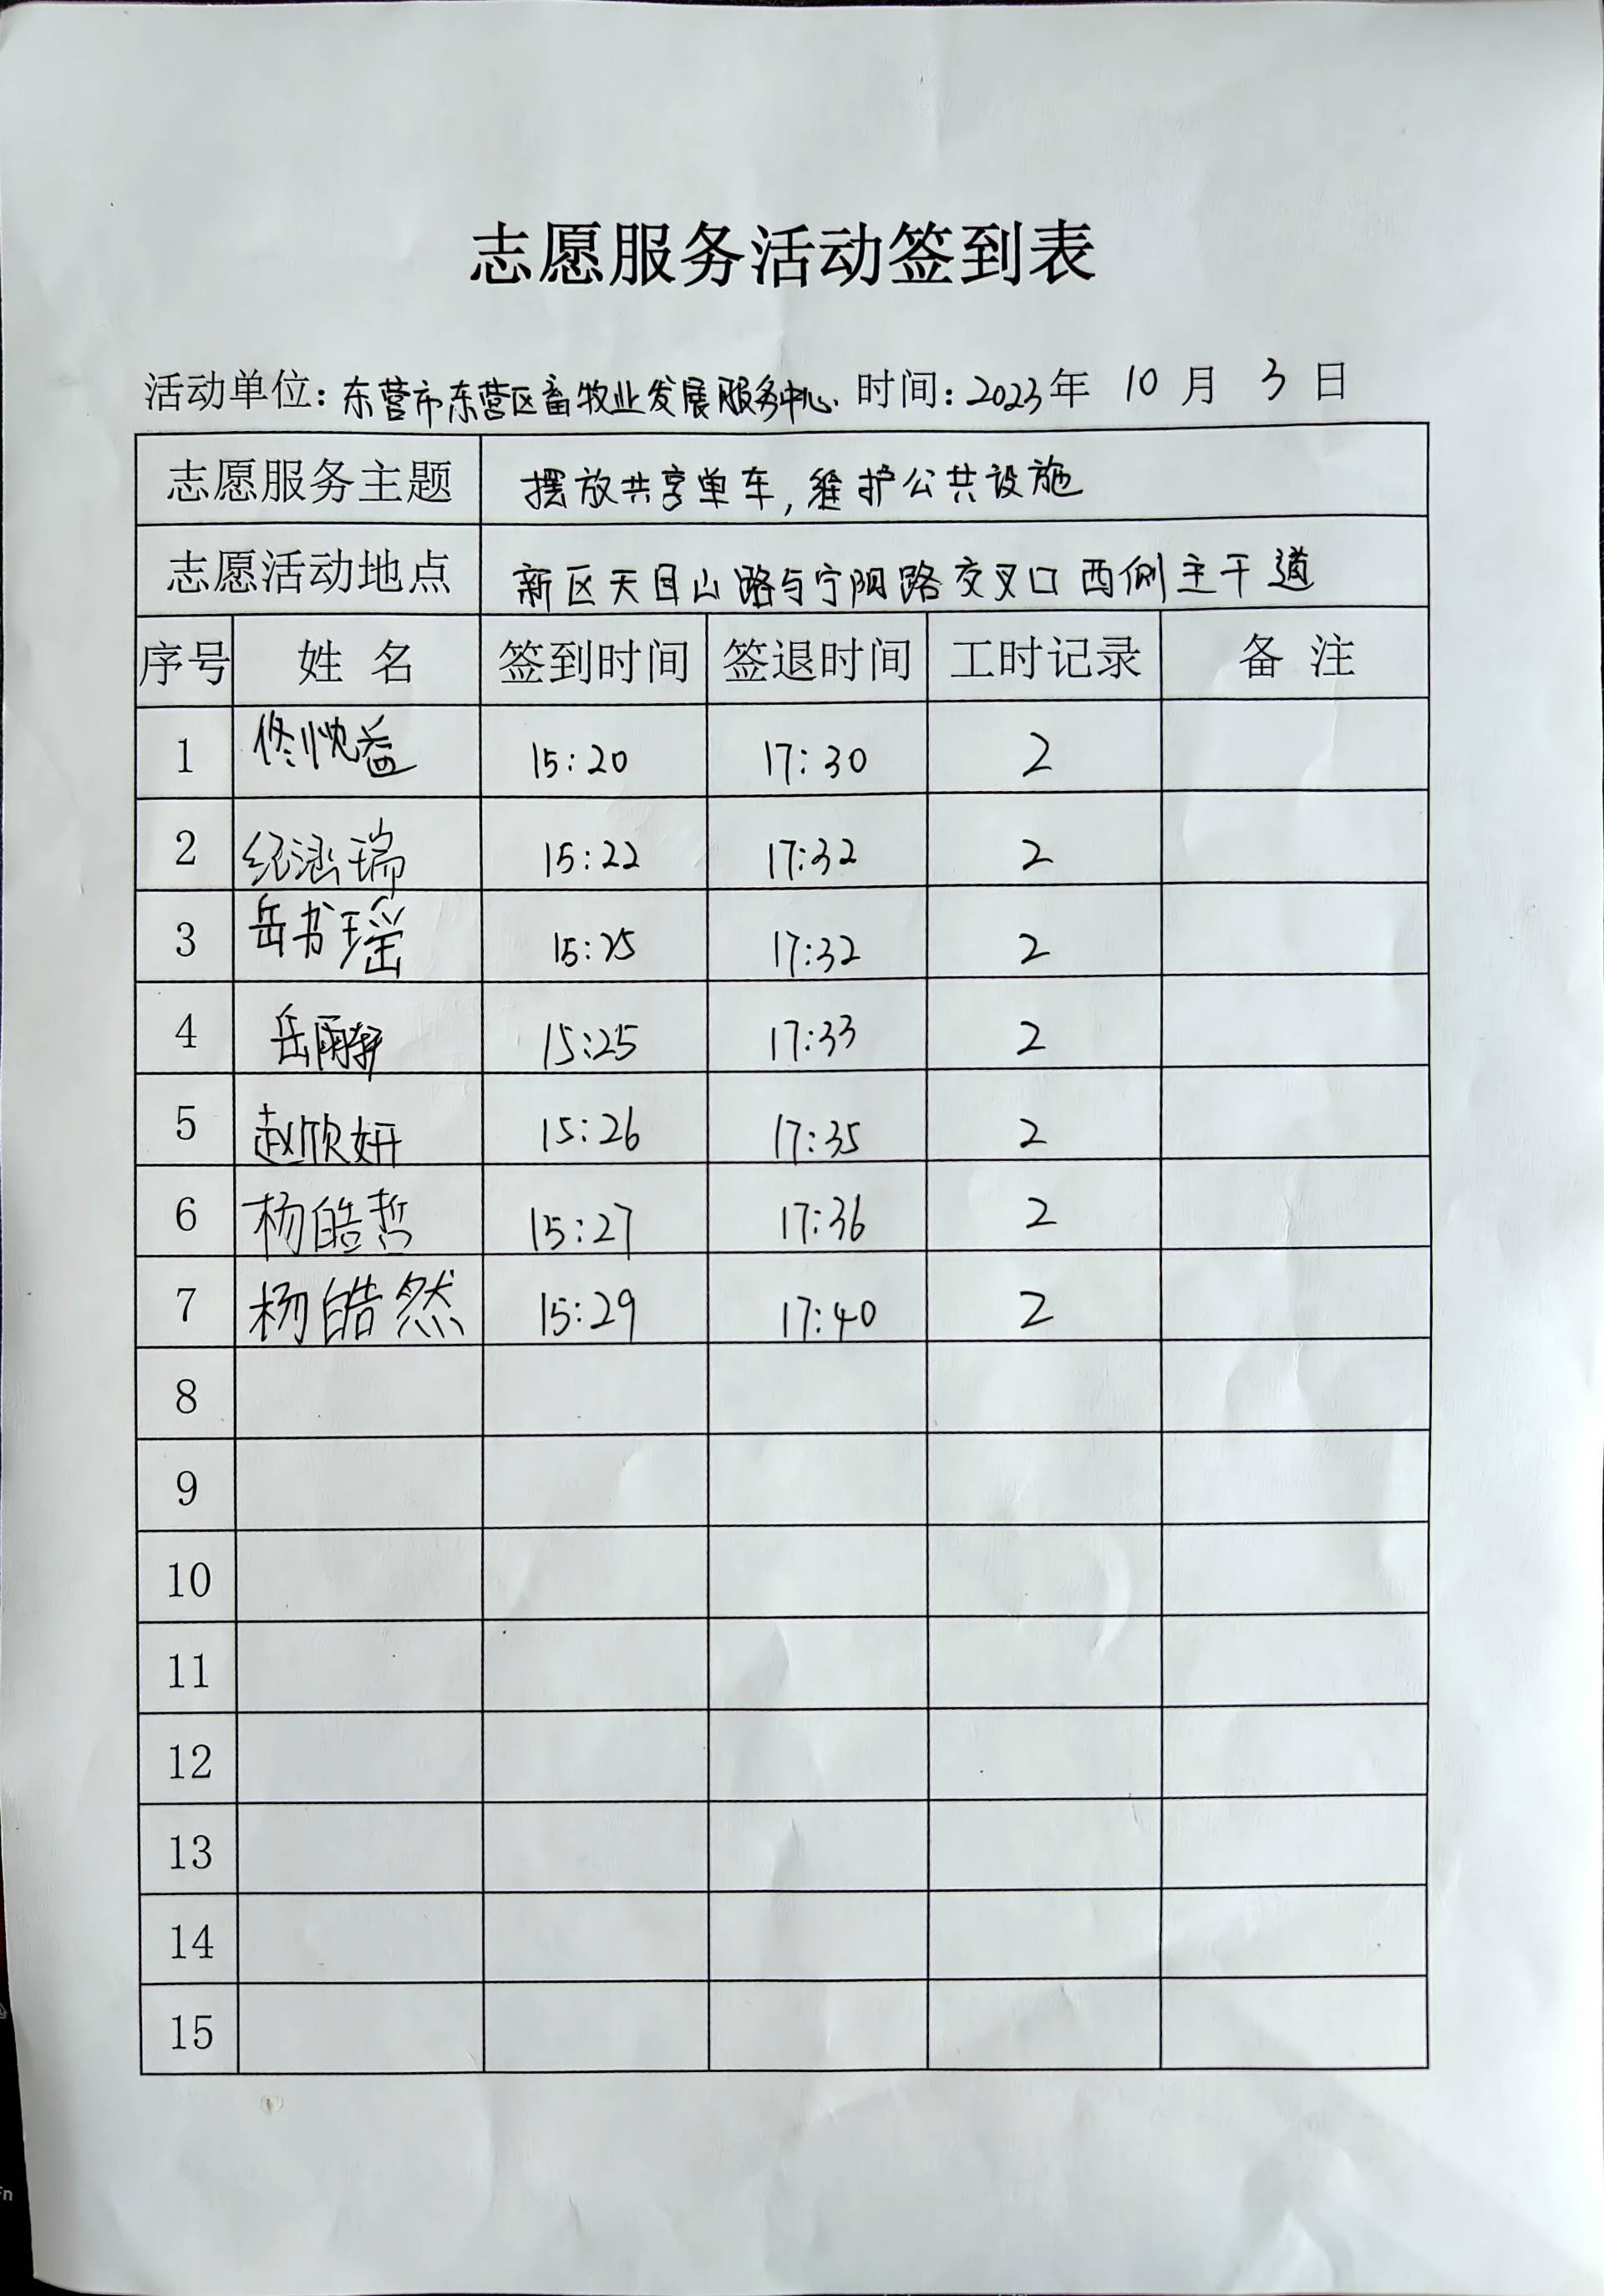 志愿服务活动签到表
活动单位：东营市东营区畜牧业发展服务中心. 时间：2023年 10 月 3 日
志愿服务主题 摆放共享单车，维护公共设施
志愿活动地点 新区天目山路与宁阳路交叉口西侧主干道
序号 姓 名 签到时间 签退时间 工时记录 备 注
1 佟忱益 15:20 17:30 2
2 纪涵瑞 15:22 17:32 2
3 岳书瑶 15:25 17:32 2
4 岳雨 15:25 17:33 2
5 赵欣妍 15:26 17:35 2
6 杨皓哲 15:27 17:36 2
7 杨皓然 15:29 17:40 2
8
9
10
11
12
13
14
15